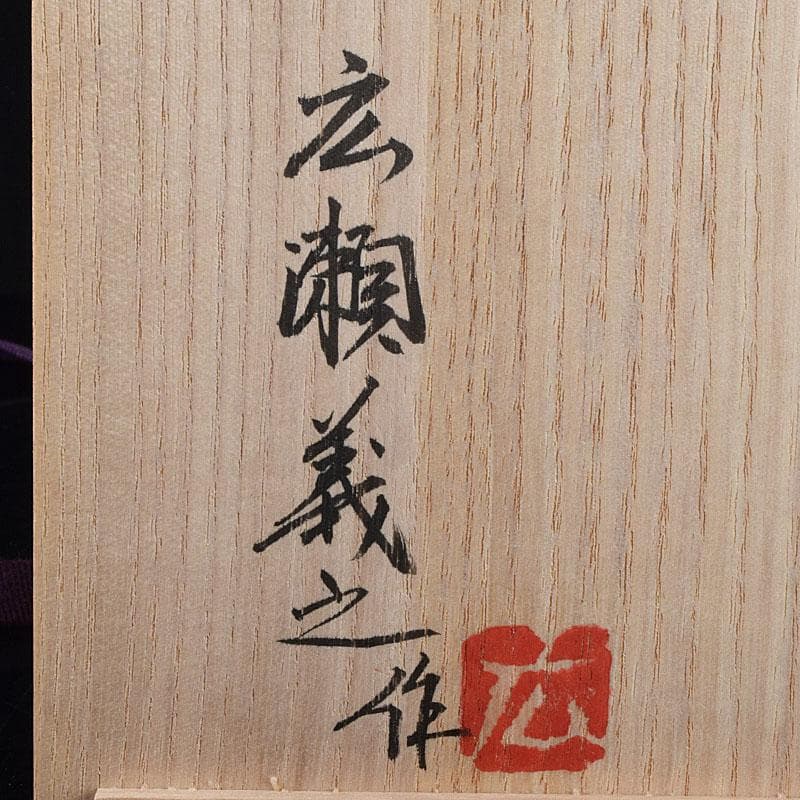 広瀬義之作
広